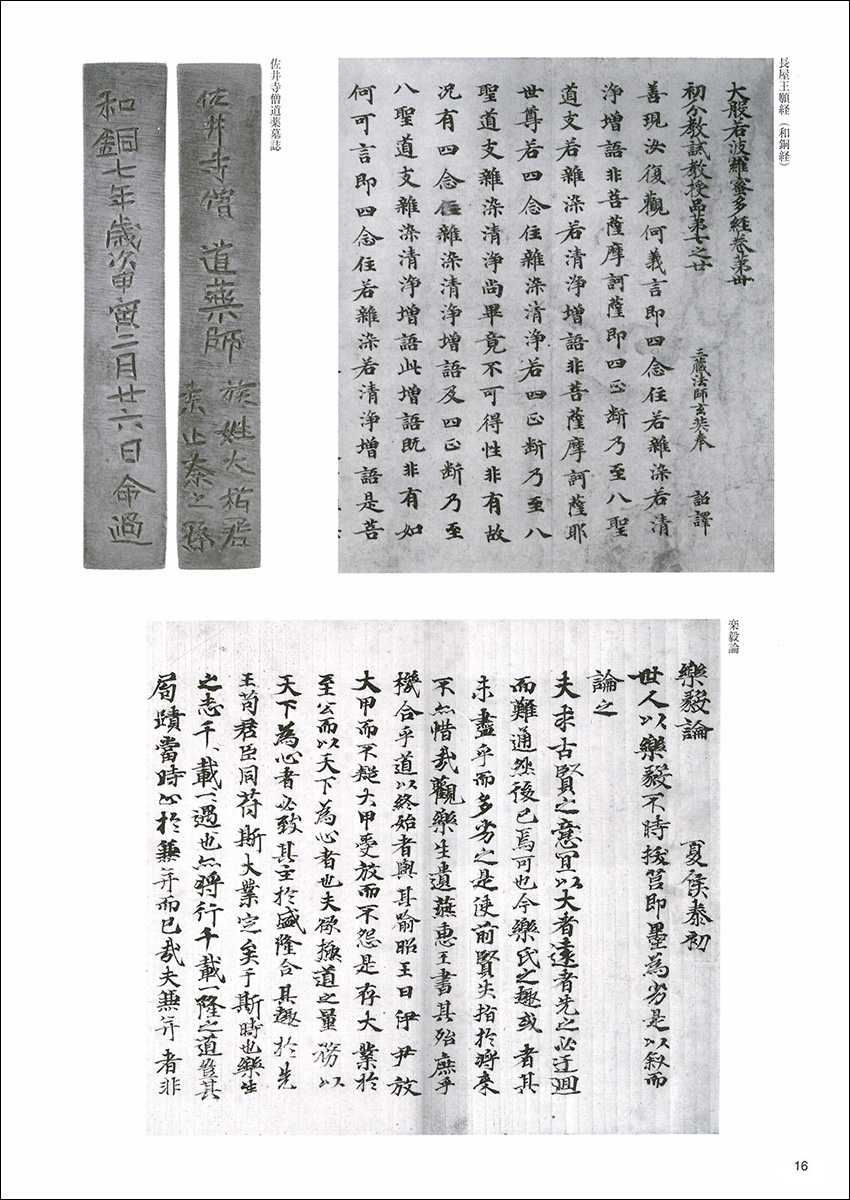 長屋王願経（和銅経）
大般若波羅蜜多經卷第卅
初分教誡教授品第七之廿　三藏法師玄奘奉　詔譯
善現汝復觀何義言即四念住若雜染若清
淨增語非菩薩摩訶薩即四正断乃至八聖
道支若雜染若清淨增語非菩薩摩訶薩耶
世尊若四念住雜染清淨若四正断乃至八
聖道支雜染清淨尚畢竟不可得性非有故
況有四念住雜染清淨增語及四正断乃至
八聖道支雜染清淨增語此增語既非有如
何可言即四念住若雜染若清淨增語是菩
佐井寺僧道薬墓誌
佐井寺僧　道藥師　族姓大楢君
素止奈之孫
和銅七年歳次甲寅二月廿六日命過
楽毅論
樂毅論　夏侯泰初
世人以樂毅不時拔莒即墨為劣是以叙而
論之
夫求古賢之意宜以大者遠者先之必迂迴
而難通然後已焉可也今樂氏之趣或者其
未盡乎而多劣之是使前賢失指於將來
不亦惜哉觀樂生遺燕惠王書其殆庶乎
機合乎道以終始者與其喻昭王曰伊尹放
大甲而不疑大甲受放而不怨是存大業於
至公而以天下為心者也夫欲極道之量務以
天下為心者必致其主於盛隆合其趣於先
王苟君臣同苻斯大業定矣于斯時也樂生
之志千載一遇也亦將行千載一隆之道豈其
局蹟當時止於兼并而已哉夫兼并者非
16